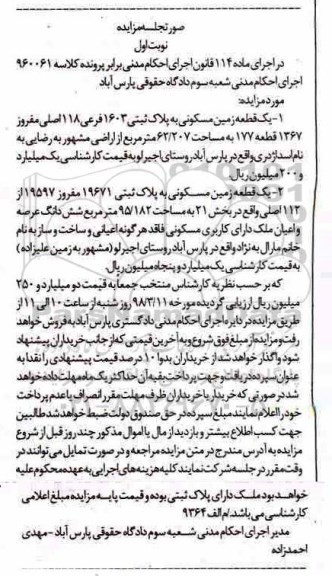 صورتجلسه مزایده
نوبت اول
در اجرای ماده ۱۱۴ قانون اجرای احکام مدنی برابر پرونده کلاسه ۹۶۰۰۶۱
اجرای احکام مدنی شعبه سوم دادگاه حقوقی پارس آباد
مورد مزایده:
۱-یک قطعه زمین مسکونی به پلاک ثبتی ۱۶۰۳ فرعی ۱۱۸ اصلی مفروز
۱۳۶۷ قطعه ۱۷۷ به مساحت ۶۲/۲۰۷ متر مربع از اراضی مشهور به رضایی به
نام اسد آذری واقع در پارس آباد روستای اجیرلو به قیمت کارشناسی یک میلیارد
و ۲۰۰ میلیون ریال.
۲-یک قطعه زمین مسکونی به پلاک ثبتی ۱۹۶۷۱ مفروز ۱۹۵۹۷ از
۱۱۲ اصلی واقع در بخش ۲۱ به مساحت ۹۵/۱۸۲ متر مربع شش دانگ عرصه
و اعیان ملک دارای کاربری مسکونی فاقد هر گونه اعیانی و ساخت و ساز به نام
خانم مارال به نژاد واقع در پارس آباد روستای اجیرلو (مشهور به زمین علیزاده)
به قیمت کارشناسی یک میلیارد و پنجاه میلیون ریال.
که بر حسب نظریه کارشناس منتخب جمعا به قیمت دو میلیارد و ۲۵۰
میلیون ریال ارزیابی گردیده مورخه ۹۸/۳/۱۱ روز شنبه از ساعت ۱۰ الی ۱۱ از
طریق مزایده در دایره اجرای احکام مدنی دادگستری پارس آباد به فروش خواهد
رفت و مزایده از مبلغ فوق شروع و به آخرین قیمتی که از جانب خریداران پیشنهاد
شود واگذار خواهد شد از خریداران بدوا ۱۰ درصد قیمت پیشنهادی را نقدا به
عنوان سپرده دریافت و جهت پرداخت بقیه آن حداکثر یک ماه مهلت داده خواهد
شد در صورتی که خریدار یا خریداران ظرف مهلت مقرر انصراف یا عدم پرداخت
خود را اعلام نمایند مبلغ سپرده در حق صندوق دولت ضبط خواهد شد طالبین
جهت کسب اطلاع بیشتر و بازدید از مال یا اموال مذکور چند روز قبل از شروع
مزایده به آدرس مندرج در متن مزایده مراجعه و در صورت تمایل می‌توانند در
وقت مقرر در جلسه شرکت نمایند کلیه هزینه های اجرایی به عهده محکوم علیه
خواهد بود ملک دارای پلاک ثبتی بوده و قیمت پایه مزایده مبلغ اعلامی
کارشناسی می باشد./م الف ۹۳۶۴
مدیر اجرای احکام مدنی شعبه سوم دادگاه حقوقی پارس آباد-مهدی
احمدزاده